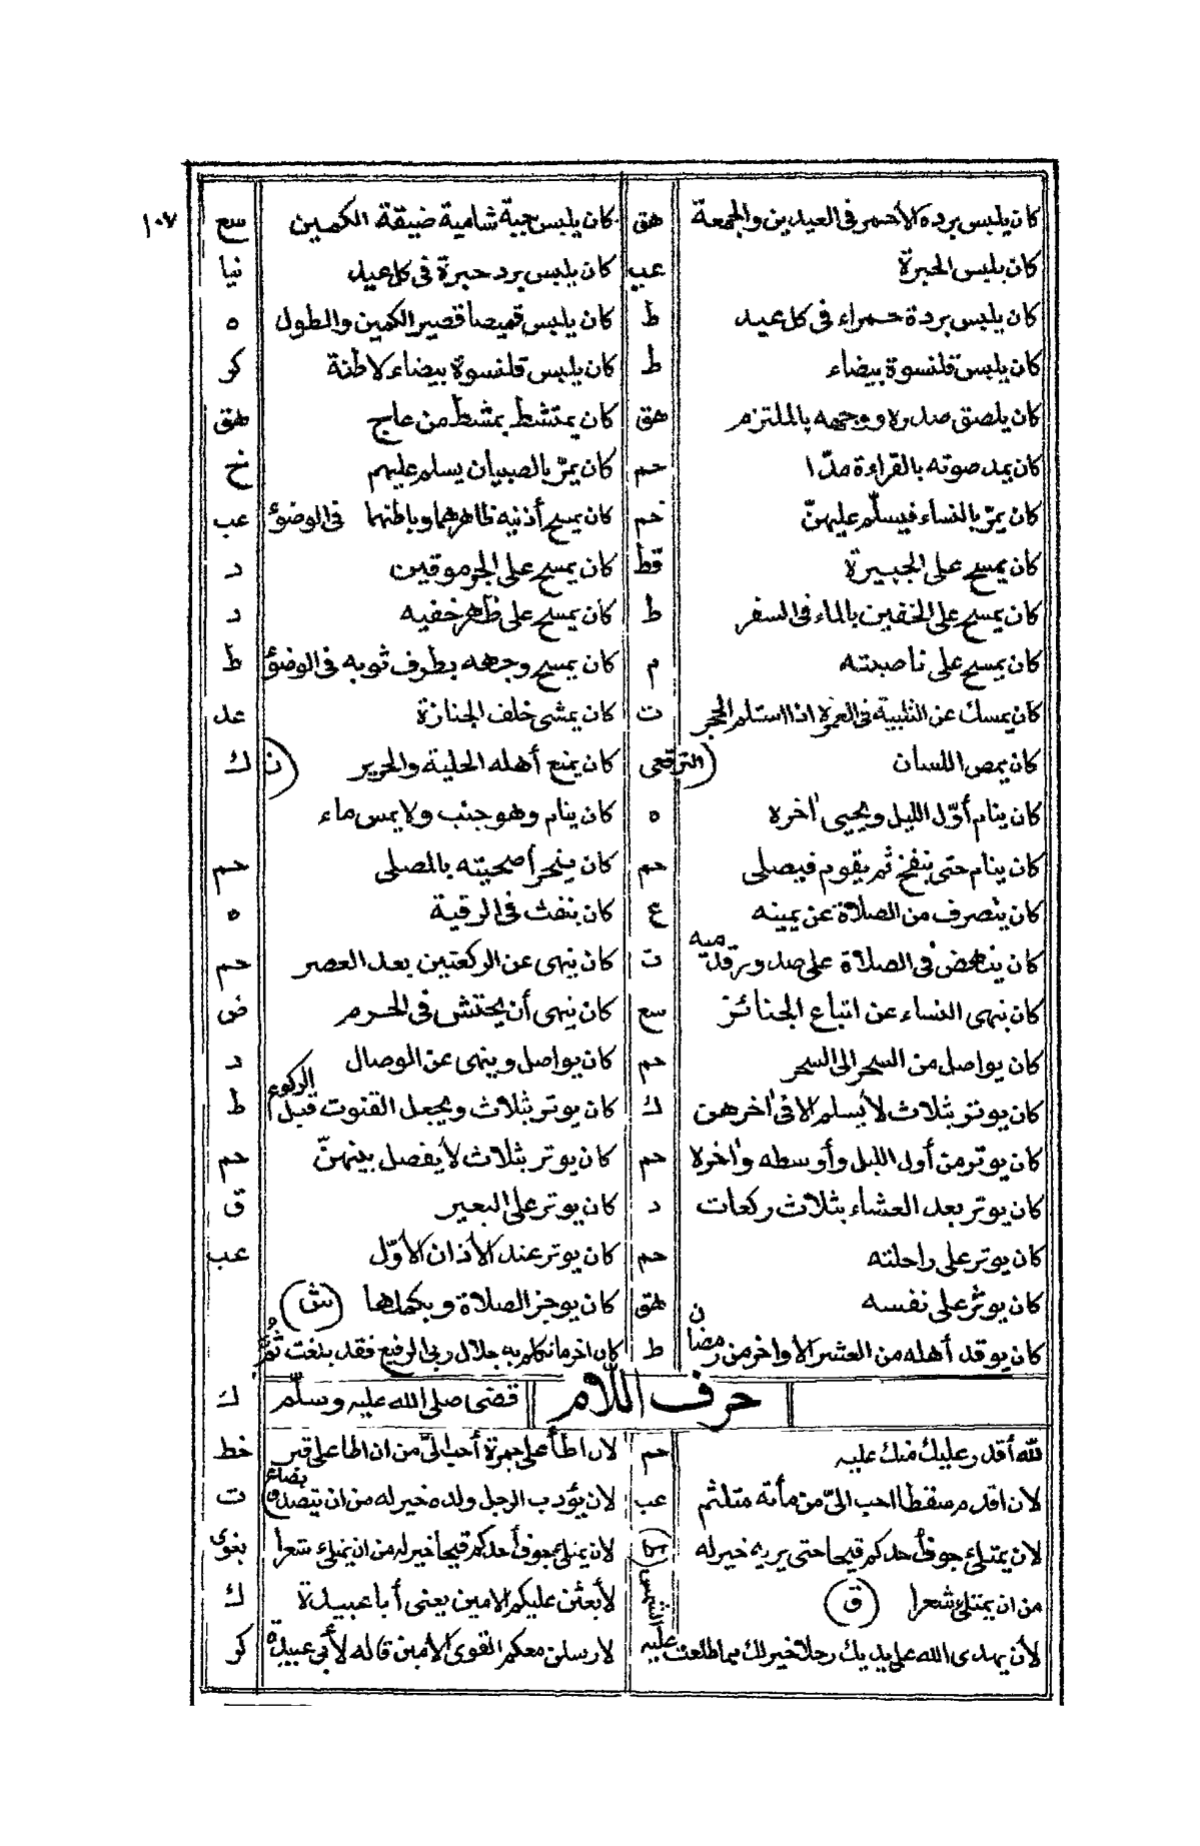 ١٠٧
كان يلبس برده الأحمر فى العيدين والجمعة هق كان يلبس جبة شامية ضيقة الكمين سع
كان يلبس الحبرة عب كان يلبس برد حبرة فى كل عيد نيا
كان يلبس بردة حمراء فى كل عيد ط كان يلبس قميصا قصير الكمين والطول ه
كان يلبس قلنسوة بيضاء ط كان يلبس قلنسوة بيضاء لاطئة كر
كان يلصق صدره ووجهه بالملتزم هق كان يمتشط بمشط من عاج هق
كان يمد صوته بالقراءة مدّا حم كان يمرّ بالصبيان يسلم عليهم خ
كان يمرّ بالنساء فيسلّم عليهنّ حم كان يمسح أذنيه ظاهرهما وباطنهما فى الوضوء عب
كان يمسح على الجبيرة قط كان يمسح على الجرموقين د
كان يمسح على الخفين بالماء فى السفر ط كان يمسح على ظاهر خفيه د
كان يمسح على ناصيته م كان يمسح وجهه بطرف ثوبه فى الوضوء ط
كان يمسك عن التلبية فى العمرة اذا استلم الحجر ت كان يمشى خلف الجنازة عد
كان يمص اللسان (الترقفى كان يمنع أهله الحلية والحرير (ن ك
كان ينام أوّل الليل ويحيى اٰخره ه كان ينام وهو جنب ولا يمس ماء
كان ينام حتى ينفخ ثم يقوم فيصلى حم كان ينحر أضحيته بالمصلى حم
كان ينصرف من الصلاة عن يمينه ع كان ينفث فى الرقية ه
كان ينهض فى الصلاة على صدور قدميه ت كان ينهى عن الركعتين بعد العصر حم
كان ينهى النساء عن اتباع الجنائز سع كان ينهى أن يحتش فى الحرم ض
كان يواصل من السحر الى السحر حم كان يواصل وينهى عن الوصال د
كان يوتر بثلاث لا يسلم الا فى اٰخرهن ك كان يوتر بثلاث ويجعل القنوت قبل الركوع ط
كان يوتر من أول الليل وأوسطه واٰخره حم كان يوتر بثلاث لا يفصل بينهنّ حم
كان يوتر بعد العشاء بثلاث ركعات د كان يوتر على البعير ق
كان يوتر على راحلته حم كان يوتر عند الأذان الأوّل عب
كان يوثر على نفسه هق كان يوجز الصلاة ويكملها (ش)
كان يوقد أهله من العشر الأواخر من رمضان ط كان اخر ما تكلم به جلال ربى الرفيع فقد بلغت ثُمَّ
حرف اللّام قضى صلى الله عليه وسلّم ك
للّه أقدر عليك منك عليه حم لان اطأ على جمرة أحب الىّ من ان اطا على قبر خط
لان اقدم سقطا احب الىّ من مأته متلثم عب لان يؤدب الرجل ولده خير له من ان يتصدق بصاع ت
لان يمتلئ جوف أحدكم قيحا حتى يريه خير له لان يمتلئ جوف أحدكم قيحا خير له من ان يمتلئ شعرا بغوى
من ان يمتلئ شعرا (ق) لأبعثن عليكم الامين يعنى أبا عبيدة ك
لأن يهدى الله على يديك رجلا خير لك مما طلعت عليه الشمس لارسلن معكم القوى الأمين قاله لأبى عبيدة كر